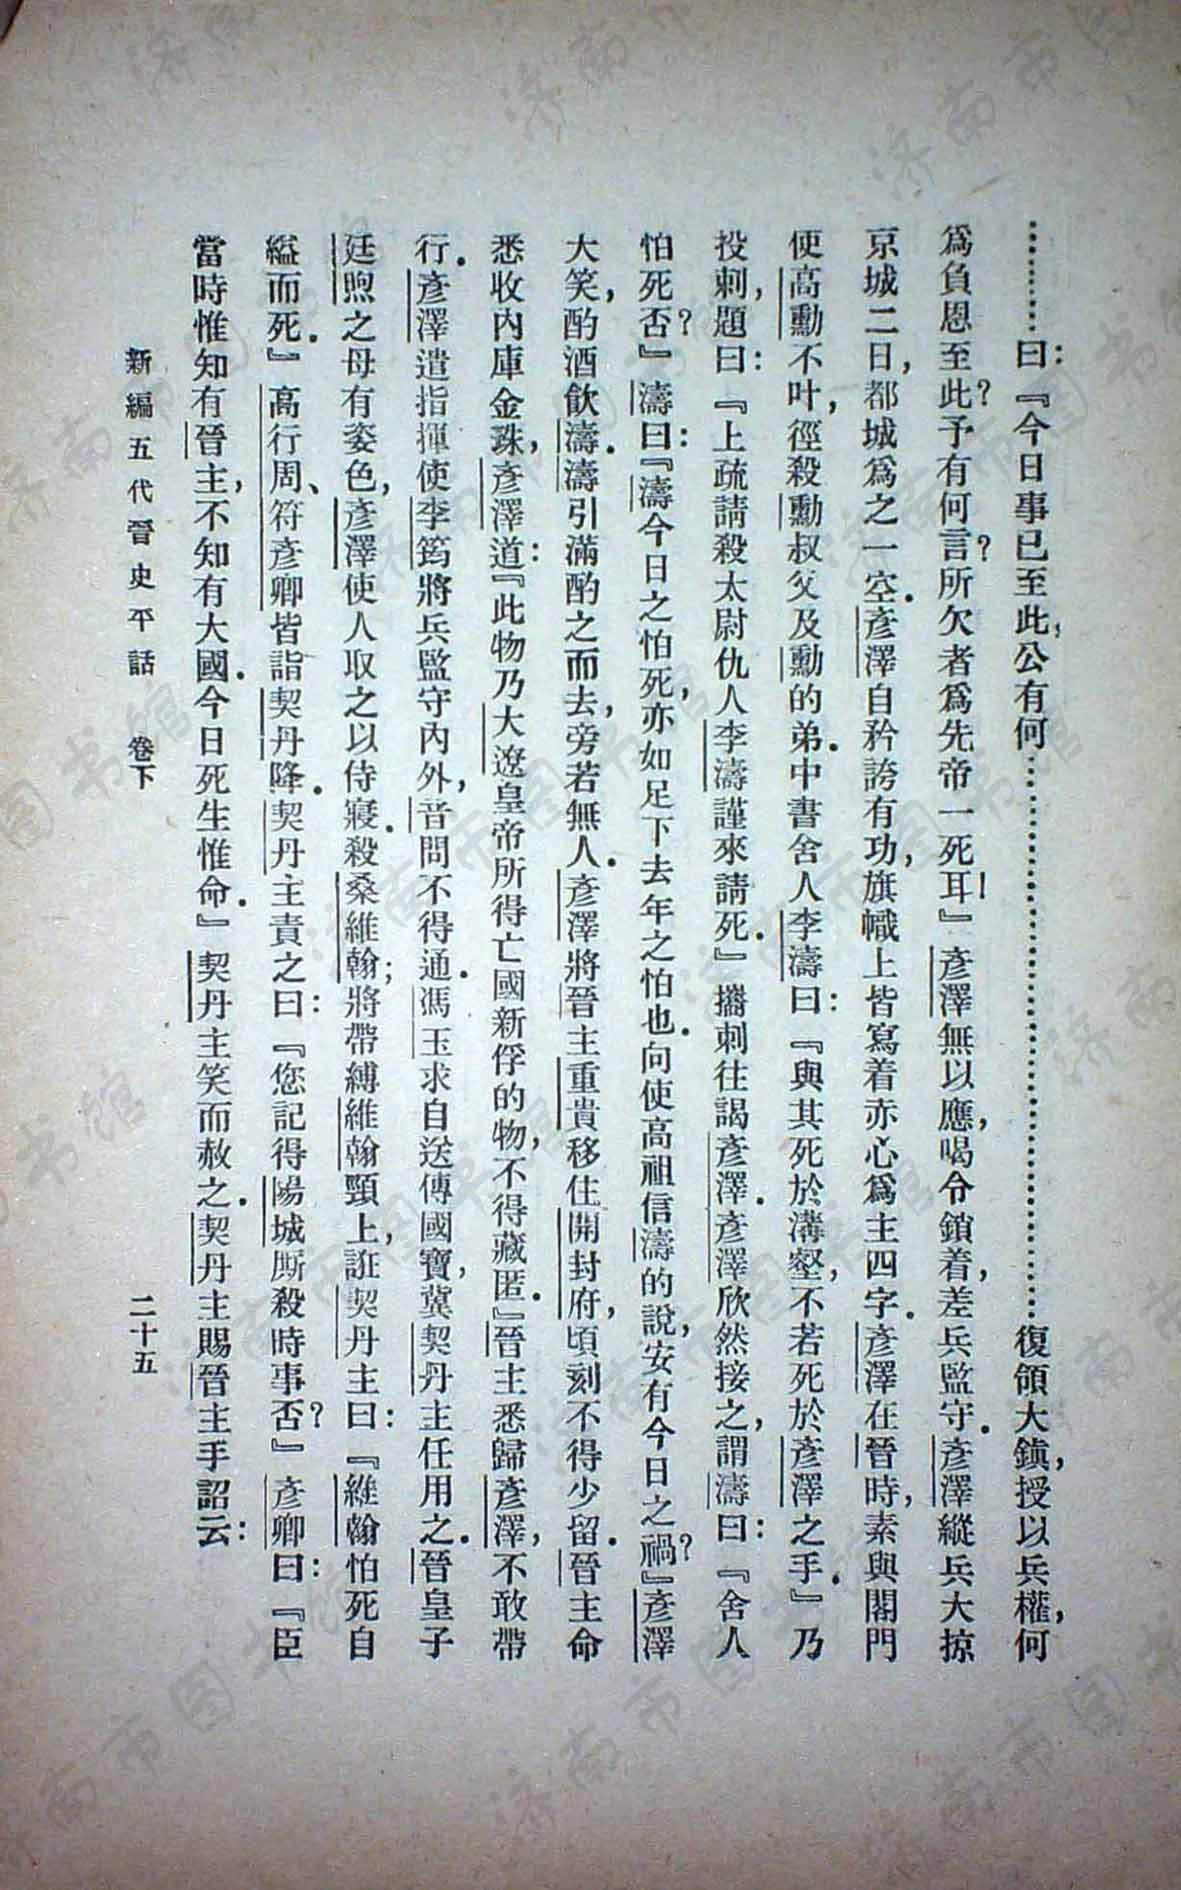 ………曰：『今日事已至此，公有何……………………………………復領大鎮，授以兵權，何
爲負恩至此？予有何言？所欠者爲先帝一死耳！』彥澤無以應，喝令鎖着，差兵監守．彥澤縱兵大掠
京城二日，都城爲之一空．彥澤自矜誇有功，旗幟上皆寫着赤心爲主四字．彥澤在晉時，素與閣門
使高勳不叶，徑殺勳叔父及勳的弟．中書舍人李濤曰：『與其死於溝壑，不若死於彥澤之手．』乃
投刺，題曰：『上疏請殺太尉仇人李濤謹來請死．』攜刺往謁彥澤．彥澤欣然接之，謂濤曰：『舍人
怕死否？』濤曰：『濤今日之怕死，亦如足下去年之怕也．向使高祖信濤的說，安有今日之禍？』彥澤
大笑，酌酒飲濤．濤引滿酌之而去，旁若無人．彥澤將晉主重貴移住開封府，頃刻不得少留．晉主命
悉收內庫金珠，彥澤道：『此物乃大遼皇帝所得亡國新俘的物，不得藏匿．』晉主悉歸彥澤，不敢帶
行．彥澤遣指揮使李筠將兵監守內外，音問不得通．馮玉求自送傳國寶，冀契丹主任用之．晉皇子
廷煦之母有姿色，彥澤使人取之以侍寢．殺桑維翰；將帶縛維翰頸上，誑契丹主曰：『維翰怕死自
縊而死．』高行周、符彥卿皆詣契丹降．契丹主責之曰：『您記得陽城厮殺時事否？』彥卿曰：『臣
當時惟知有晉主，不知有大國．今日死生惟命．』契丹主笑而赦之．契丹主賜晉主手詔云：
新編五代晉史平話　卷下　二十五
济南市图书馆